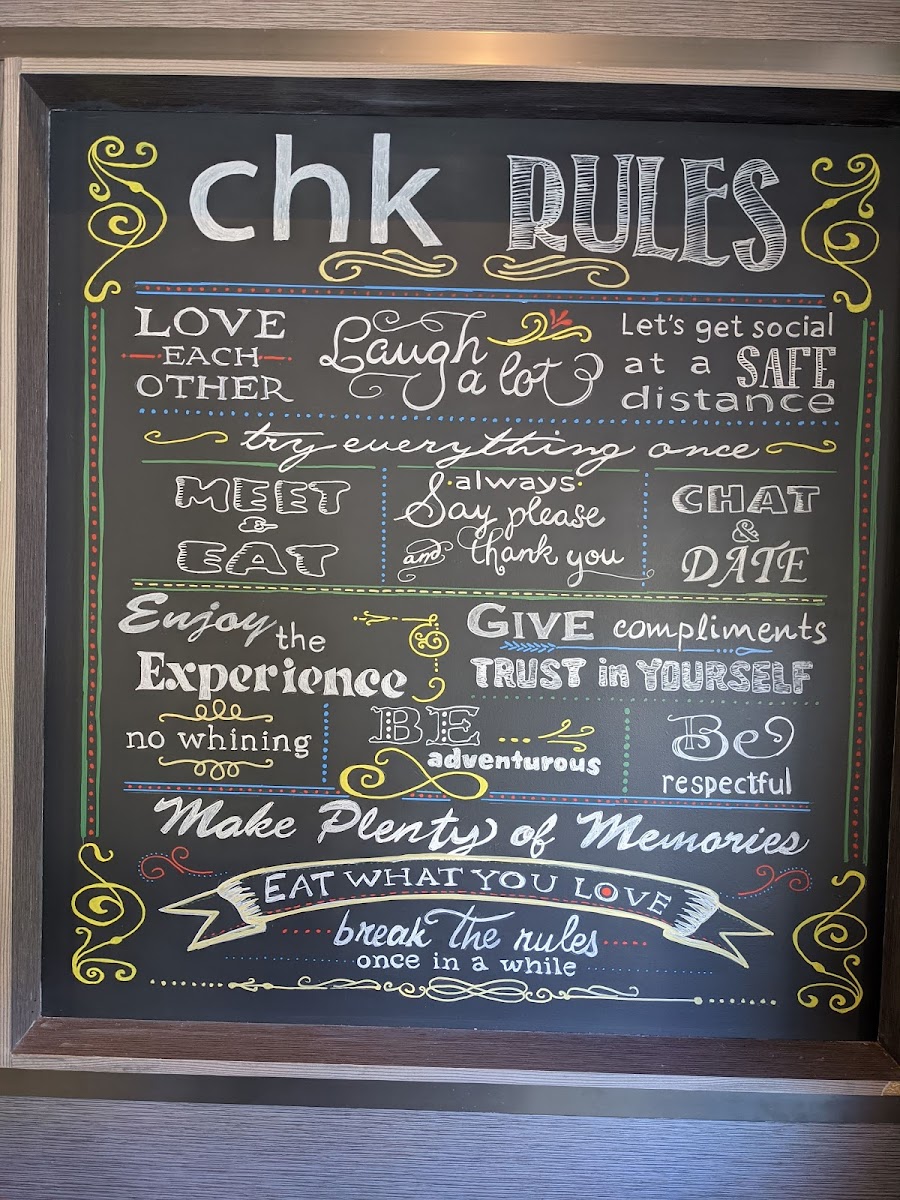 chk RULES
LOVE
EACH
OTHER
Laugh
a lot
Let's get social
at a SAFE
distance
try everything once
MEET
&
EAT
always
Say please
and thank you
CHAT
&
DATE
Enjoy the
Experience
GIVE compliments
TRUST in YOURSELF
no whining
BE
adventurous
Be
respectful
Make Plenty of Memories
EAT WHAT YOU LOVE
break the rules
once in a while